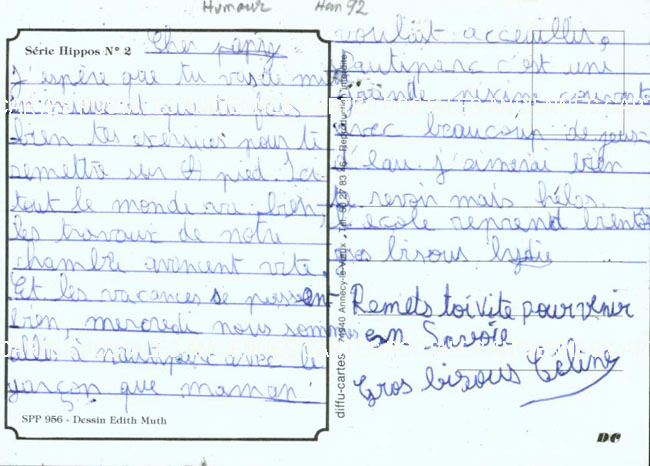 Humour Jan 92
Série Hippos N° 2
Cher papy
J'espère que tu vas de mi
en mieux et que tu fais
bien tes exercices pour te
remettre sur pied. Ici
tout le monde va bien
les travaux de notre
chambre avancent vite.
Et les vacances se passent
bien, mercredi nous sommes
allés à nautiparc avec le
garçon que maman
SPP 956 - Dessin Edith Muth
diffu-cartes 74940 Annecy-le-Vieux - Tél. 50 27 83 Reproduction interdite
voulait acceuillir,
nautiparc c'est une
grande piscine couverte
avec beaucoup de jeux
d'eau j'aimerai bien
te revoir mais hélas
l'école reprend bientôt
gros bisous lydie
Remets toi vite pour venir
en Savoie
Gros bisous Céline
DC